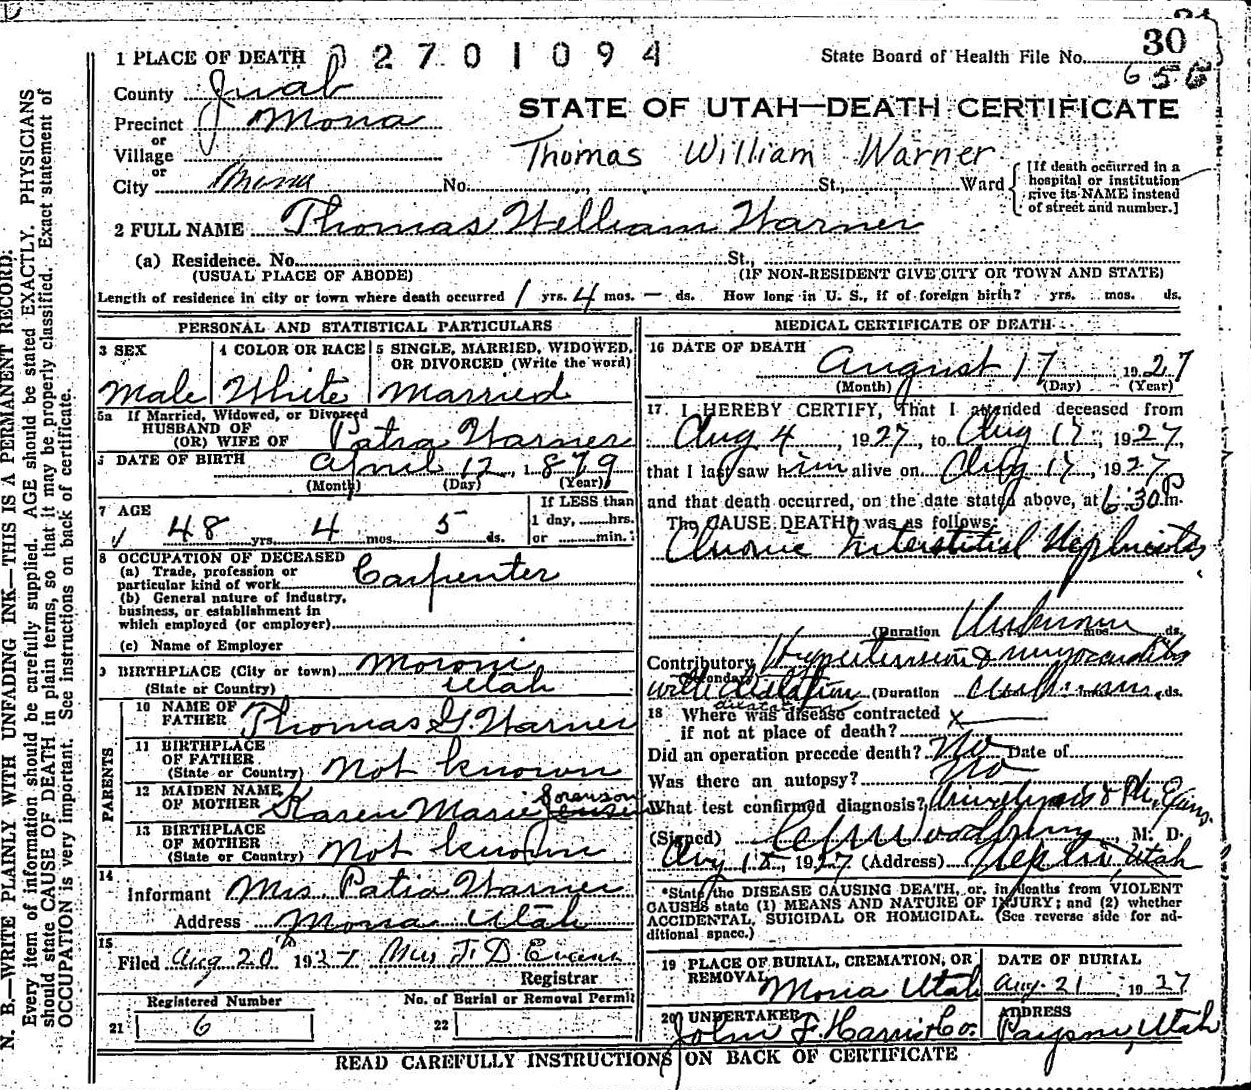 30
1 PLACE OF DEATH 02701094 State Board of Health File No. 656
County Juab
STATE OF UTAH—DEATH CERTIFICATE
Precinct Mona
or
Village
Thomas William Warner
or
City Mona No. St., Ward
[If death occurred in a hospital or institution give its NAME instead of street and number.]
2 FULL NAME Thomas William Warner
(a) Residence. No. St.,
(USUAL PLACE OF ABODE) (IF NON-RESIDENT GIVE CITY OR TOWN AND STATE)
Length of residence in city or town where death occurred 1 yrs. 4 mos. — ds. How long in U. S., if of foreign birth? yrs. mos. ds.
PERSONAL AND STATISTICAL PARTICULARS
3 SEX 4 COLOR OR RACE 5 SINGLE, MARRIED, WIDOWED, OR DIVORCED (Write the word)
Male White Married
5a If Married, Widowed, or Divorced
HUSBAND OF
(OR) WIFE OF Patra Warner
DATE OF BIRTH April 12, 1879
(Month) (Day) (Year)
7 AGE
48 yrs. 4 mos. 5 ds.
If LESS than
1 day, hrs.
or min.
8 OCCUPATION OF DECEASED
(a) Trade, profession or
particular kind of work Carpenter
(b) General nature of industry,
business, or establishment in
which employed (or employer)
(c) Name of Employer
9 BIRTHPLACE (City or town) Moroni
(State or Country) Utah
PARENTS
10 NAME OF
FATHER Thomas G. Warner
11 BIRTHPLACE
OF FATHER
(State or Country) Not known
12 MAIDEN NAME
OF MOTHER Karen Marie Sorenson
13 BIRTHPLACE
OF MOTHER
(State or Country) Not known
14
Informant Mrs. Patra Warner
Address Mona Utah
15
Filed Aug 20th 1927 Mrs F. D Evans
Registrar
Registered Number No. of Burial or Removal Permit
21 6 22
MEDICAL CERTIFICATE OF DEATH
16 DATE OF DEATH
August 17 1927
(Month) (Day) (Year)
17. I HEREBY CERTIFY, That I attended deceased from
Aug 4, 1927, to Aug 17, 1927,
that I last saw him alive on Aug 17, 1927
and that death occurred, on the date stated above, at 6:30 P m.
The CAUSE DEATH was as follows:
Chronic Interstitial Nephritis
(Duration Unknown mos. ds.
Contributory Hypertension & myocarditis
(Secondary)
with dilatation (Duration unknown ds.
18 Where was disease contracted
if not at place of death? x
Did an operation precede death? No Date of
Was there an autopsy? No
What test confirmed diagnosis? Urinelysis & Ph. Exam.
(Signed) Woodbury, M. D.
Aug 18, 1927 (Address) Nephi, Utah
*State the DISEASE CAUSING DEATH, or, in deaths from VIOLENT
CAUSES state (1) MEANS AND NATURE OF INJURY; and (2) whether
ACCIDENTAL, SUICIDAL OR HOMICIDAL. (See reverse side for ad-
ditional space.)
19 PLACE OF BURIAL, CREMATION, OR
REMOVAL Mona Utah
DATE OF BURIAL
Aug. 21 1927
20 UNDERTAKER
John F. Harris Co.
ADDRESS
Payson, Utah
READ CAREFULLY INSTRUCTIONS ON BACK OF CERTIFICATE
N. B.—WRITE PLAINLY WITH UNFADING INK—THIS IS A PERMANENT RECORD.
Every item of information should be carefully supplied. AGE should be stated EXACTLY. PHYSICIANS
should state CAUSE OF DEATH in plain terms, so that it may be properly classified. Exact statement of
OCCUPATION is very important. See instructions on back of certificate.